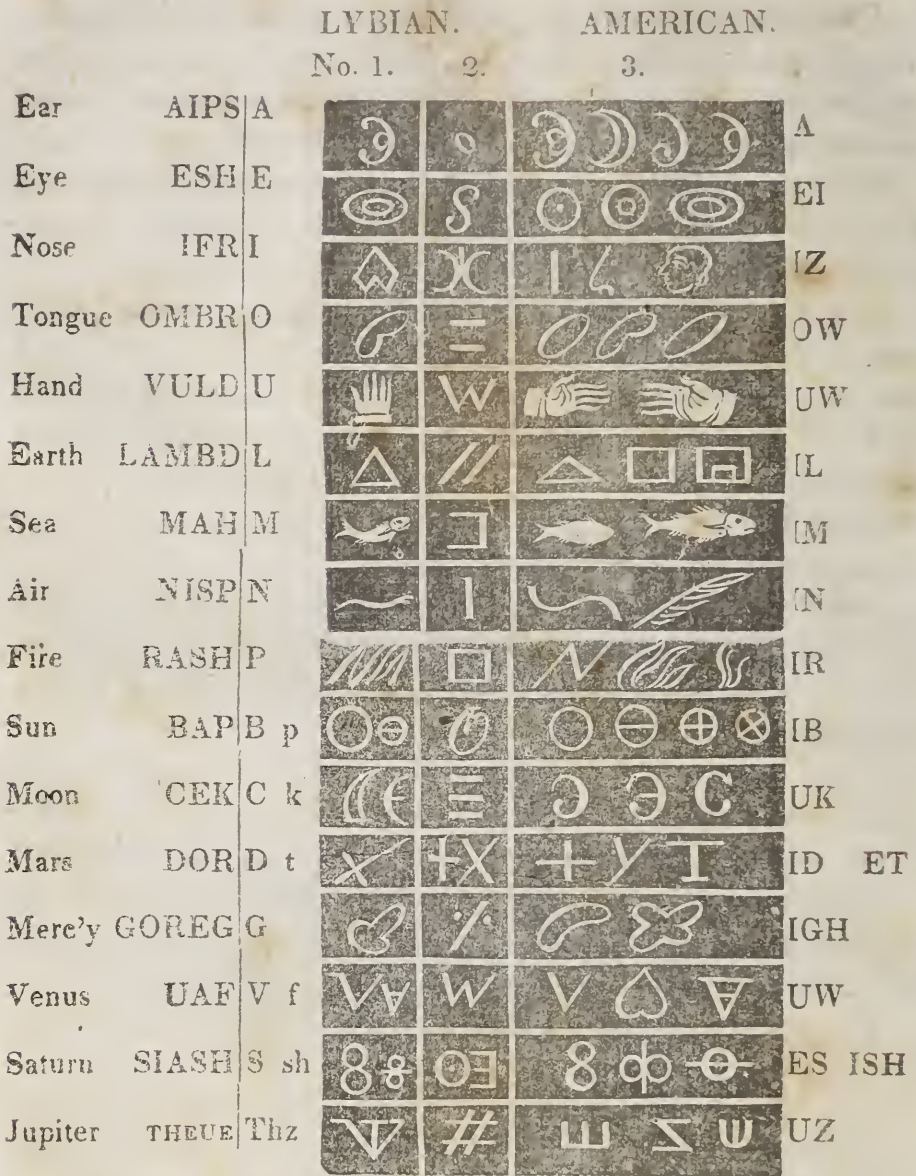 LYBIAN. AMERICAN.
No. 1. 2. 3.
Ear AIPS A A
Eye ESH E EI
Nose IFR I IZ
Tongue OMBR O OW
Hand VULD U UW
Earth LAMBD L IL
Sea MAH M IM
Air NISP N IN
Fire RASH P IR
Sun BAP B p IB
Moon CEK C k UK
Mars DOR D t ID ET
Merc'y GOREG G IGH
Venus UAF V f UW
Saturn SIASH S sh ES ISH
Jupiter THEUE Thz UZ